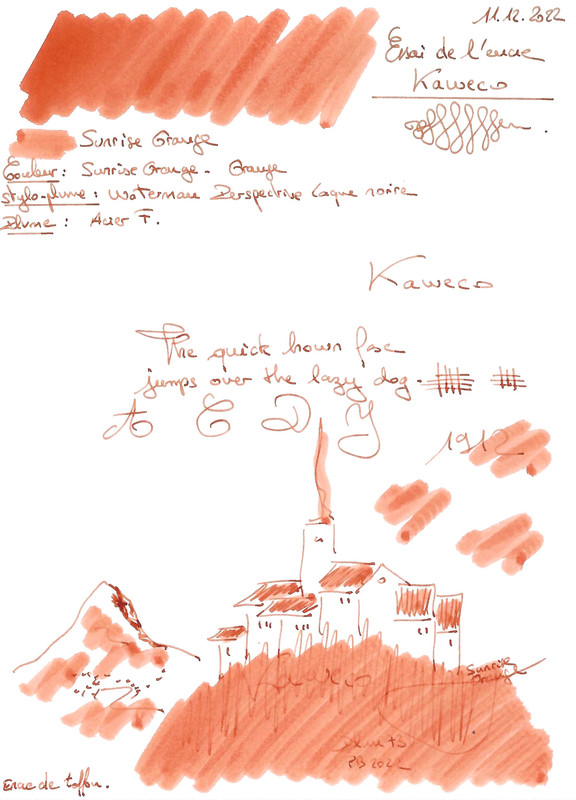 11.12.2022
Essai de l'encre
Kaweco
Sunrise Orange
Couleur : Sunrise Orange - Orange
Stylo-plume : Waterman Perspective laque noire
Plume : Acier F.
Kaweco
The quick brown fox
jumps over the lazy dog.
A C D Y
1912
Kaweco
Sunrise
Orange
PB 2022